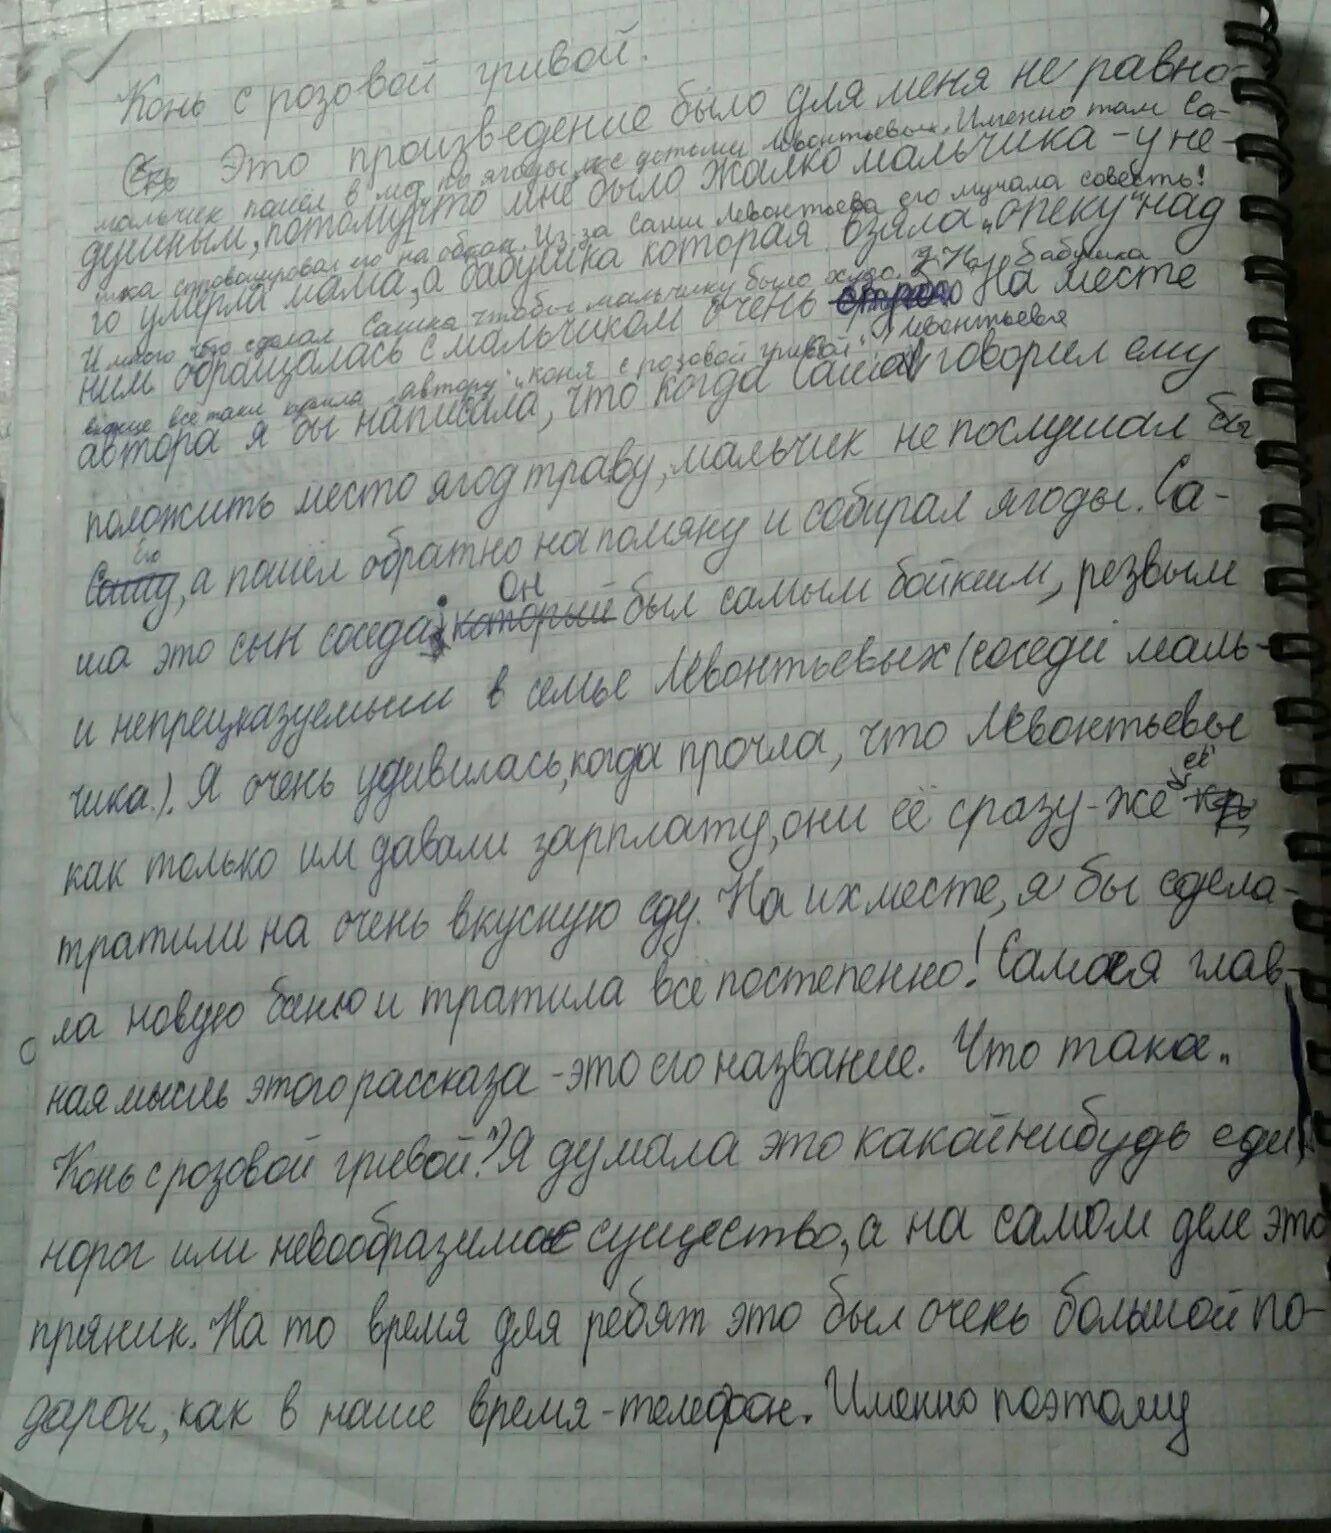 Конь с розовой гривой.
Это произведение было для меня не равно-
мальчик пошёл в лес по ягоды с детьми Левонтьевых. Именно там Са-
душным, потому что мне было жалко мальчика - у не-
шка спровоцировал его на обман. Из-за Саши Левонтьева его мучала совесть!
го умерла мама, а бабушка которая взяла „опеку" над
И много что сделал Сашка чтобы мальчику было худо. Но бабушка
ним обращалась с мальчиком очень строго На месте
всё таки купила автору „коня с розовой гривой". Левонтьева
автора я бы написала, что когда Саша говорил ему
положить место ягод траву, мальчик не послушал бы
его
Сашу, а пошёл обратно на поляну и собирал ягоды. Са-
он
ша это сын соседа; который был самым бойким, резвым
и непрецказуемым в семье Левонтьевых (соседи маль-
чика.). Я очень удивилась, когда прочла, что Левонтьевы
её
как только им давали зарплату, они её сразу-же
тратили на очень вкусную еду. На их месте, я бы сдела-
ла новую баню и тратила всё постепенно! Самая глав-
ная мысль этого рассказа - это его название. Что такое.
Конь с розовой гривой? Я думала это какойнибудь еди
норог или невообразимое существо, а на самом деле это
пряник. На то время для ребят это был очень большой по-
дарок, как в наше время - телефон. Именно поэтому